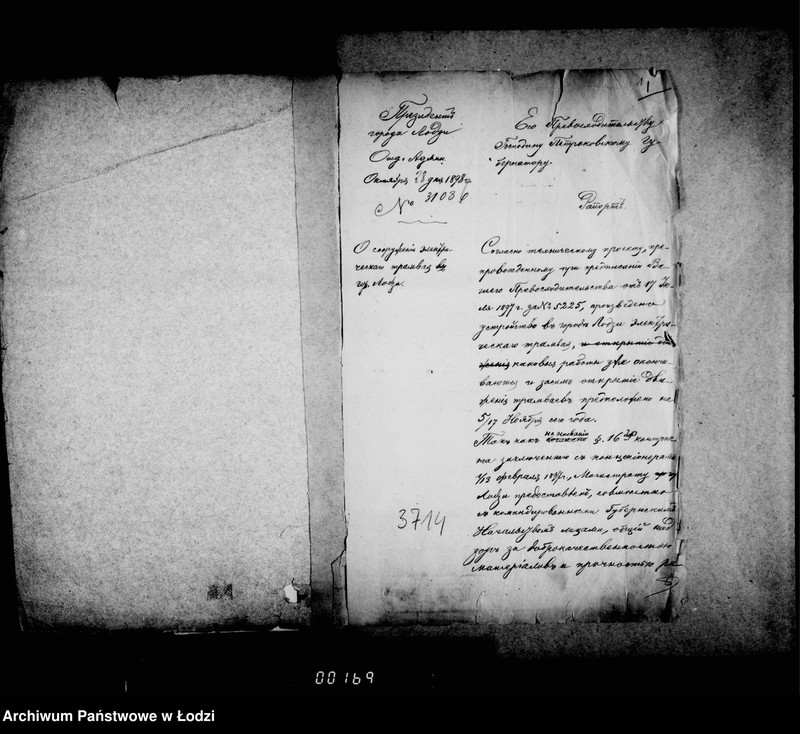 1
Президентъ
города Лодзи
Отд. Админ.
Октября 28 дня 1898 г.
№ 3103
О сооруженіи электри-
ческаго трамвая въ
гор. Лодзи.
3714
Его Превосходительству
Господину Петроковскому Гу-
бернатору.
Рапортъ.
Согласно техническому проекту, пре-
провожденному при предписаніи Ва-
шего Превосходительства отъ 17 Ію-
ля 1897 г. за № 5225, произведено
устройство въ городѣ Лодзи электри-
ческаго трамвая, и открытіе дви-
женія каковыя работы уже оканчи-
ваются и засимъ открытіе дви-
женія трамваевъ предположено на
5/17 Ноября сего года.
Такъ какъ на основаніи § 16 контрак-
та заключеннаго съ концессіонерами
1/13 февраля 1897 г., Магистрату
Лодзи предоставленъ, совмѣстно
съ командированными Губернскимъ
Начальствомъ лицами, общій над-
зоръ за доброкачественностью
матеріаловъ и прочностью ра-
00169
Archiwum Państwowe w Łodzi